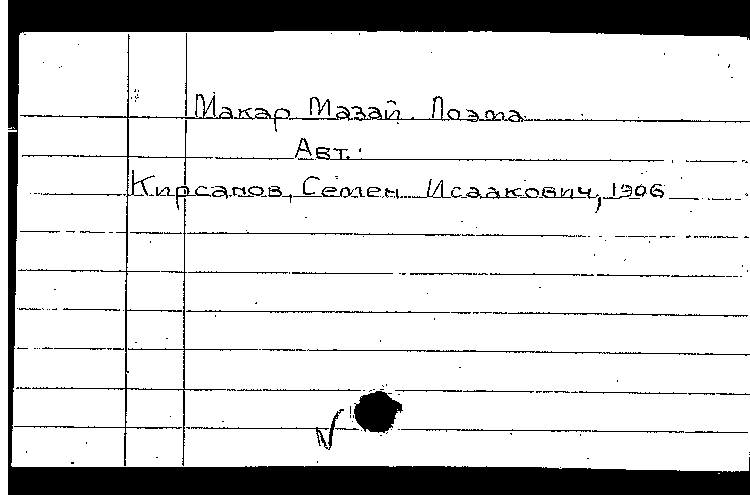 Макар Мазай. Поэма
Авт.:
Кирсанов, Семен Исаакович, 1906